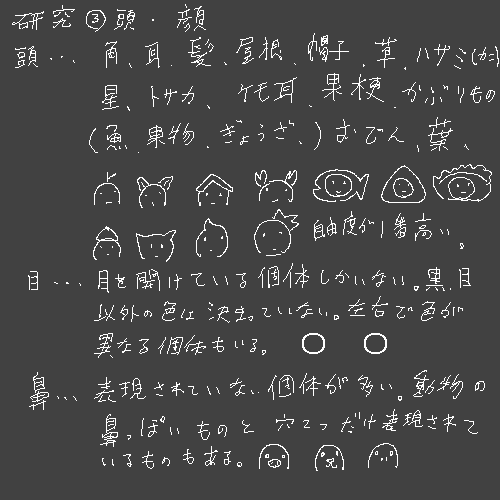 研究③頭・顔
頭… 角、耳、髪、屋根、帽子、草、ハサミ(カニ)
星、トサカ、ケモ耳、果梗、かぶりもの
(魚、果物、ぎょうざ、)おでん、葉、
自由度が1番高い。
目… 目を開けている個体しかいない。黒目
以外の色は決まっていない。左右で色が
異なる個体もいる。
鼻… 表現されていない個体が多い。動物の
鼻っぽいものと穴2つだけ表現されて
いるものもある。